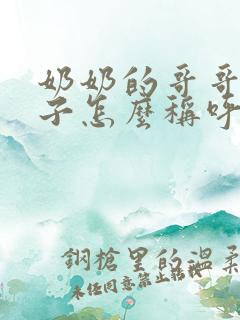 奶奶的哥哥
子怎麼稱呼
鋼槍里的溫柔
未任同意禁止轉載